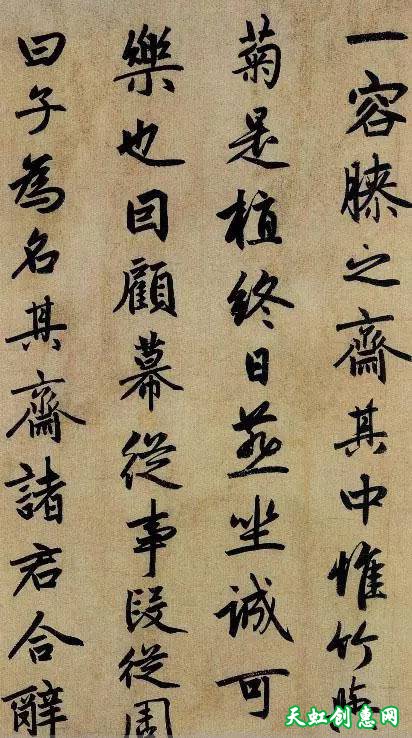 一容膝之齋其中惟竹
菊是植終日燕坐誠可
樂也因顧幕從事段從周
曰子為名其齋諸君合辭
天虹创意网